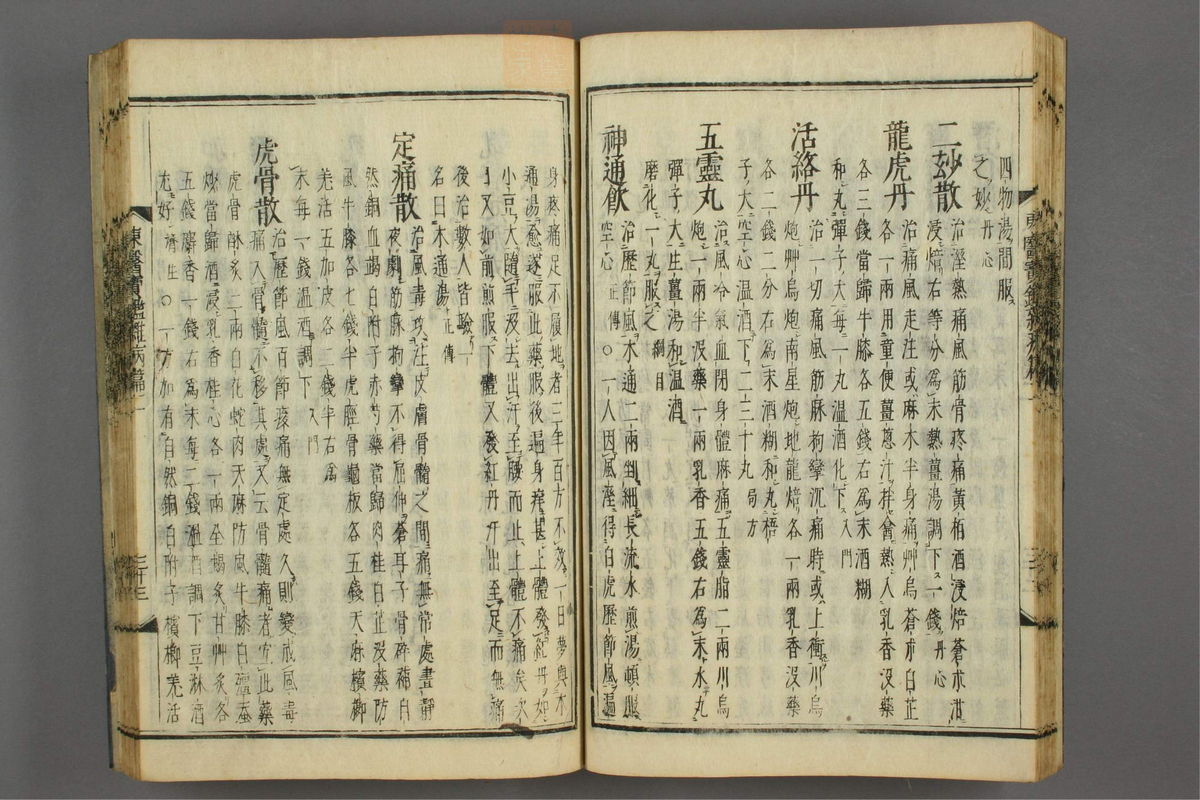 四物湯間服
之妙丹心
二玅散治溼熱痛風筋骨疼痛黃栢酒浸焙蒼朮泔
浸焙右等分爲末熱薑湯調下一錢丹心
龍虎丹治痛風走注或麻木半身痛艸烏蒼朮白芷
各一兩用童便薑蔥汁拌禽熱入乳香沒藥
各三錢當歸牛膝各五錢右爲末酒糊
和丸彈子大每一丸溫酒化下入門
活絡丹治一切痛風筋脉拘攣沉痛時或上衝川烏
炮艸烏炮南星炮地龍焙各一兩乳香沒藥
各二錢二分右爲末酒糊和丸梧
子大空心溫酒下二三十丸局方
五靈丸治風冷氣血閉身體麻痛五靈脂二兩川烏
炮一兩半沒藥一兩乳香五錢右爲末水丸
彈子大生薑湯和溫酒
磨化一丸服之綱目
神通飮治歷節風木通二兩剉細長流水煎湯頓服
空心正傳○一人因風座得白虎歷節風遍
身疼痛足不履地者三年百方不效一日夢與木
通湯愈遂服此藥服後遍身痒甚上體發紅丹如
小豆大隨手沒去出汗至腰而止上體不痛矣次
日又如前煎服下體又發紅丹汗出至足而無痛
後治數人皆驗一
名曰木通湯正傳
定痛散治風毒攻注皮膚骨髓之間痛無常處晝靜
夜劇筋麻拘攣不得屈伸蒼耳子骨碎補自
然銅血竭白附子赤芍藥當歸肉桂白芷沒藥防
風牛膝各七錢半虎脛骨龜板各五錢天麻檳榔
羌活五加皮各二錢半右爲
末每一錢溫酒調下入門
虎骨散治歷節風百節疼痛無定處久則變成風毒
痛入骨髓不移其處又云骨髓痛者宜此藥
虎骨酥炙二兩白花蛇肉天麻防風牛膝白殭蚕
炒當歸酒浸乳香桂心各一兩全蝎炙甘艸炙各
五錢麝香一錢右爲末每二錢溫酒調下豆淋酒
尤好濟生○一方加有自然銅白附子檳榔羌活
東醫寶鑑雜病篇二
三十三